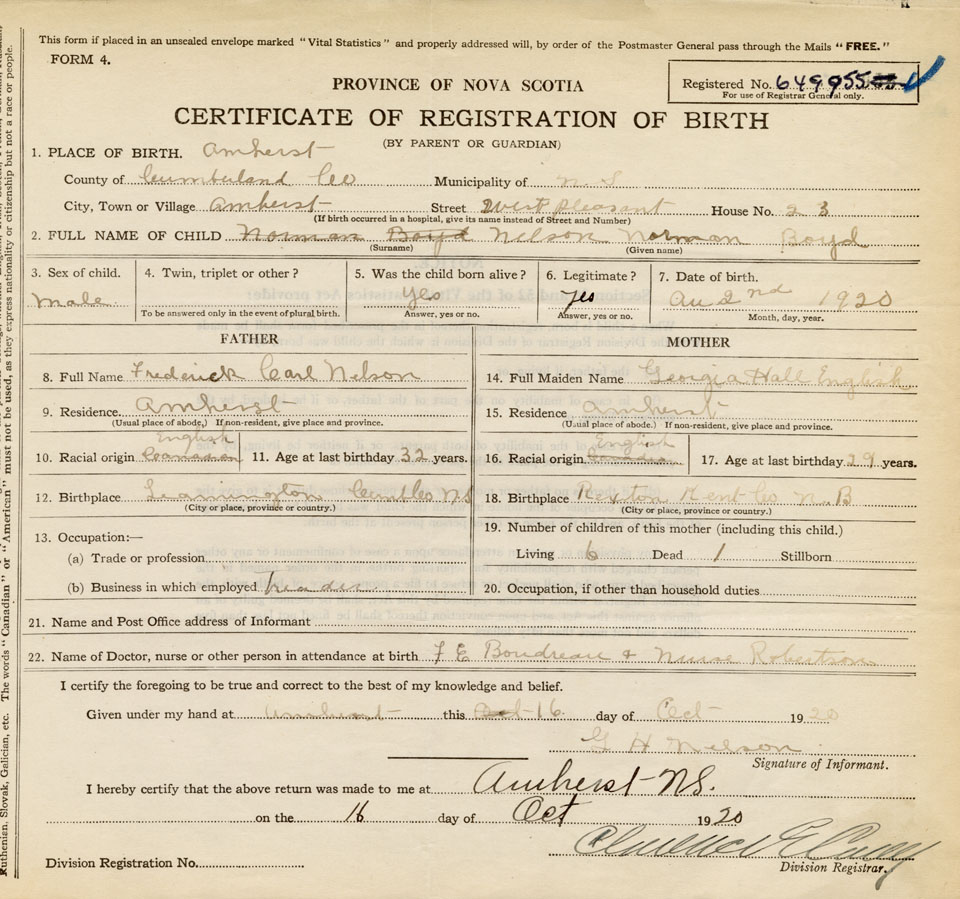 This form if placed in an unsealed envelope marked "Vital Statistics" and properly addressed will, by order of the Postmaster General pass through the Mails "FREE."
FORM 4.
PROVINCE OF NOVA SCOTIA
Registered No. 649955
For use of Registrar General only.
CERTIFICATE OF REGISTRATION OF BIRTH
(BY PARENT OR GUARDIAN)
1. PLACE OF BIRTH. Amherst
County of Cumberland Co Municipality of N.S
City, Town or Village Amherst Street West Pleasant House No. 23
(If birth occurred in a hospital, give its name instead of Street and Number)
2. FULL NAME OF CHILD Norman Boyd Nelson Norman Boyd
(Surname) (Given name)
3. Sex of child. 4. Twin, triplet or other? 5. Was the child born alive? 6. Legitimate? 7. Date of birth.
Male yes yes Au 2nd 1920
To be answered only in the event of plural birth. Answer, yes or no. Answer, yes or no. Month, day, year.
FATHER
8. Full Name Frederick Carl Nelson
9. Residence Amherst
(Usual place of abode,) If non-resident, give place and province.
English
10. Racial origin Canadian 11. Age at last birthday 32 years.
12. Birthplace Leamington Cumbles N.S
(City or place, province or country.)
13. Occupation:—
(a) Trade or profession
(b) Business in which employed
MOTHER
14. Full Maiden Name Georgia Hall English
15. Residence Amherst
(Usual place of abode.) If non-resident, give place and province.
English
16. Racial origin Canadian 17. Age at last birthday 29 years.
18. Birthplace Rexton Kent Co N.B
(City or place, province or country.)
19. Number of children of this mother (including this child.)
Living 6 Dead 1 Stillborn
20. Occupation, if other than household duties
21. Name and Post Office address of Informant
22. Name of Doctor, nurse or other person in attendance at birth F E Boudreau & Nurse Robertson
I certify the foregoing to be true and correct to the best of my knowledge and belief.
Given under my hand at Amherst this 16 day of Oct 1920
G H Nelson
Signature of Informant.
I hereby certify that the above return was made to me at Amherst N.S.
on the 16 day of Oct 1920
Division Registration No.
Division Registrar.
Ruthenian, Slovak, Galician, etc. The words "Canadian" or "American" must not be used, as they express nationality or citizenship but not a race or people.